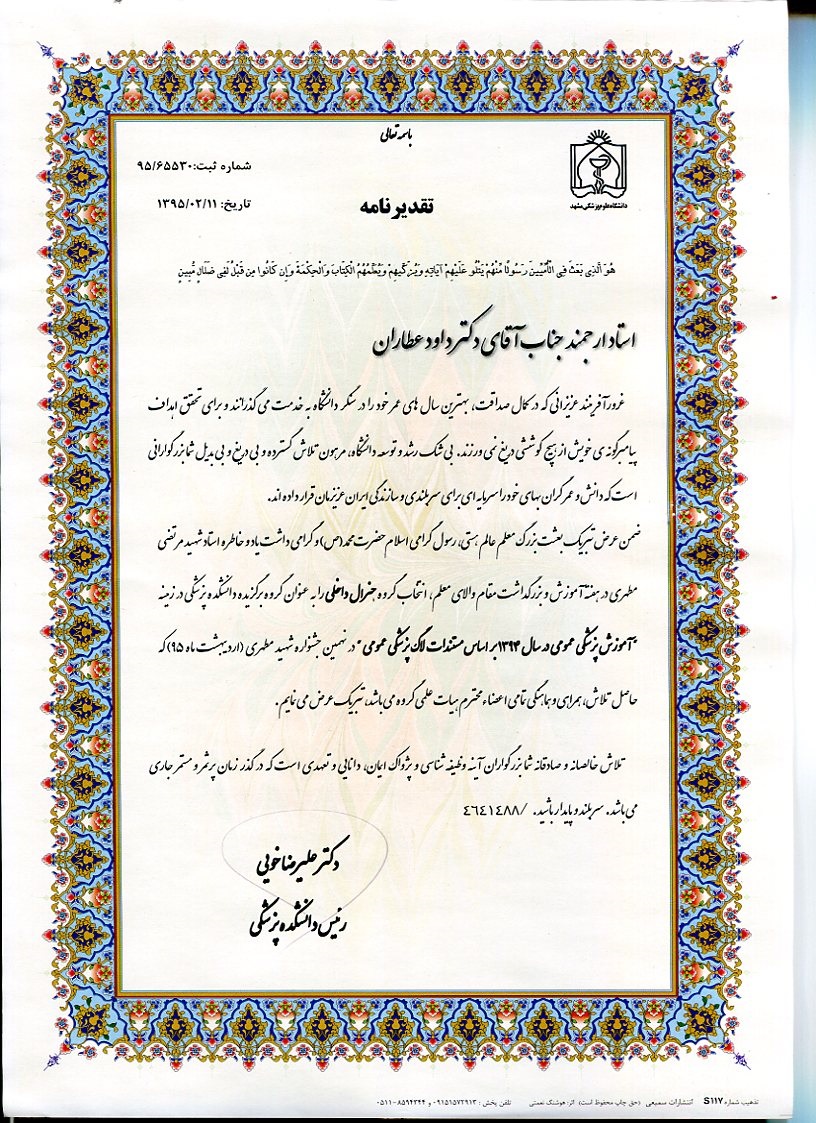 باسمه تعالی
دانشگاه علوم پزشکی مشهد
شماره ثبت: ۹۵/۶۵۵۳۰
تاریخ: ۱۳۹۵/۰۲/۱۱
تقدیرنامه
هُوَ الَّذِي بَعَثَ فِي الْأُمِّيِّينَ رَسُولًا مِّنْهُمْ يَتْلُو عَلَيْهِمْ آيَاتِهِ وَيُزَكِّيهِمْ وَيُعَلِّمُهُمُ الْكِتَابَ وَالْحِكْمَةَ وَإِن كَانُوا مِن قَبْلُ لَفِي ضَلَالٍ مُّبِينٍ
استاد ارجمند جناب آقای دکتر داود عطاران
غرور آفرینند عزیزانی که در کمال صداقت، بهترین سال های عمر خود را در سنگر دانشگاه به خدمت می گذرانند و برای تحقق اهداف
پیامبرگونه ی خویش از هیچ کوششی دریغ نمی ورزند. بی شک رشد و توسعه دانشگاه، مرهون تلاش گسترده و بی دریغ و بی بدیل شما بزرگوارانی
است که دانش و عمر گران بهای خود را سرمایه ای برای سربلندی و سازندگی ایران عزیزمان قرار داده اند.
ضمن عرض تبریک بعثت بزرگ معلم عالم هستی، رسول گرامی اسلام حضرت محمد (ص) و گرامی داشت یاد و خاطره استاد شهید مرتضی
مطهری در هفته آموزش و بزرگداشت مقام والای معلم، انتخاب گروه جنرال داخلی را به عنوان گروه برگزیده دانشکده پزشکی در زمینه
"آموزش پزشکی عمومی در سال ۱۳۹۴ بر اساس مستندات لاگ پزشکی عمومی" در نهمین جشنواره شهید مطهری (اردیبهشت ماه ۹۵) که
حاصل تلاش، همراهی و هماهنگی تمامی اعضاء محترم هیات علمی گروه می باشد، تبریک عرض می نمایم.
تلاش خالصانه و صادقانه شما بزرگواران آینه وظیفه شناسی و پژواک ایمان، دانایی و تعهدی است که در گذر زمان پرثمر و مستمر جاری
می باشد. سربلند و پایدار باشید. /٤٦٤١٤٨٨
دکتر علیرضا خویی
رئیس دانشکده پزشکی
تذهیب شماره S۱۱۷ انتشارات سمیعی (حق چاپ محفوظ است) اثر: هوشنگ نعمتی تلفن پخش: ۰۹۱۵۱۵۷۲۹۱۳ و ۸۵۹۴۳۴۴-۰۵۱۱